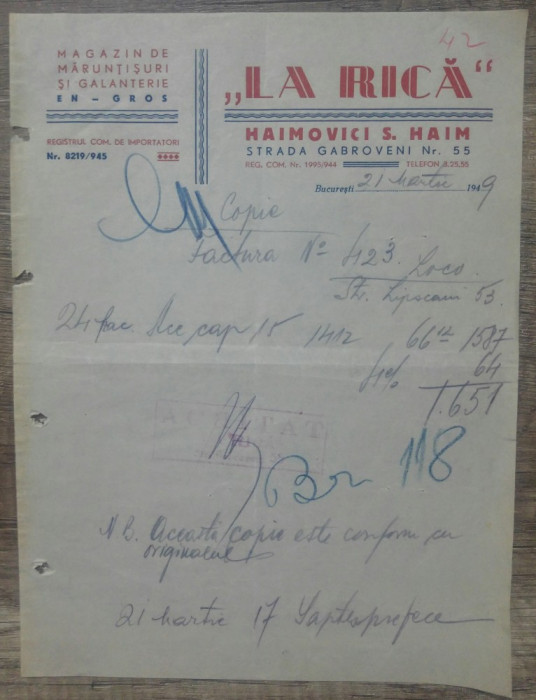 42
MAGAZIN DE
MĂRUNȚIȘURI
ȘI GALANTERIE
EN-GROS
„LA RICĂ“
HAIMOVICI S. HAIM
STRADA GABROVENI Nr. 55
REGISTRUL COM. DE IMPORTATORI
Nr. 8219/945
REG. COM. Nr. 1995/944 TELEFON 5.25.55
București 21 Martie 1949
Copie
Factura No 423. Loco.
Str. Lipscani 53.
24 pac. Ace cap 15 1412 66 12 1587
4% 64
1.651
Bon 118
NB. Aceasta copie este conform cu
originalul
21 Martie 17